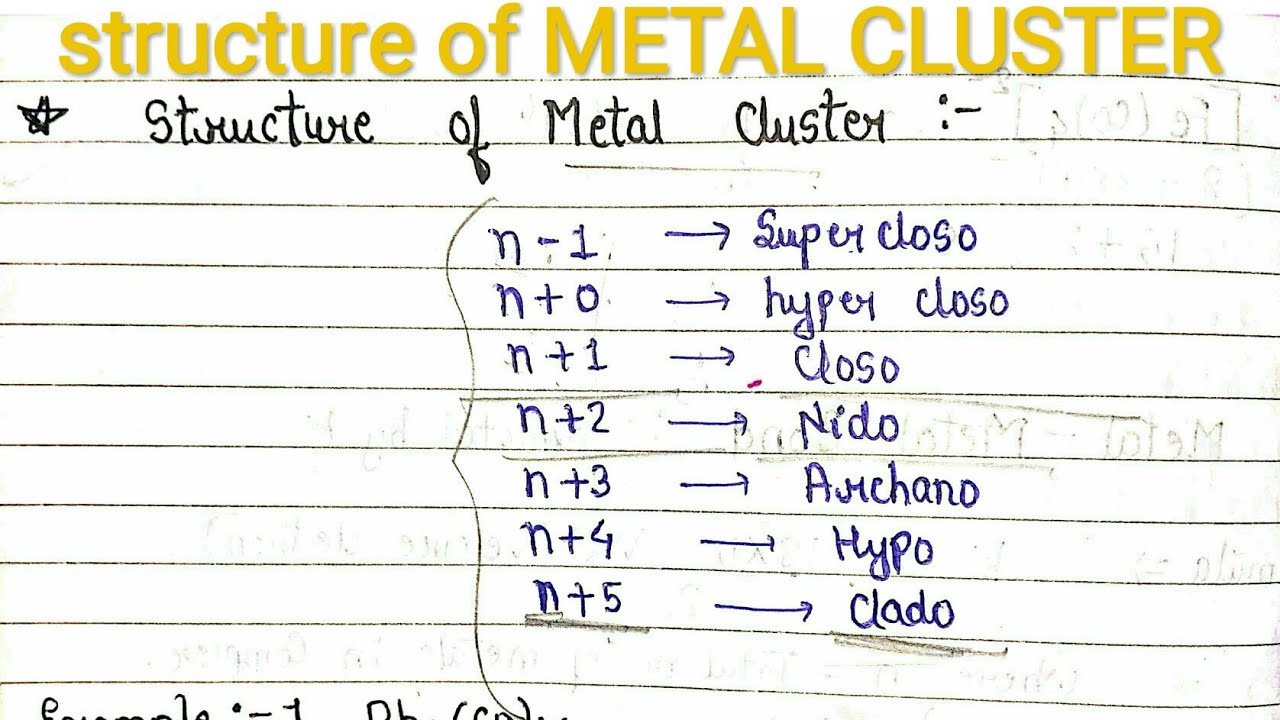 structure of METAL CLUSTER
☆ Structure of Metal Cluster :-
n - 1 → Super closo
n + 0 → hyper closo
n + 1 → Closo
n + 2 → Nido
n + 3 → Archano
n + 4 → Hypo
n + 5 → Clado
Example :- 1